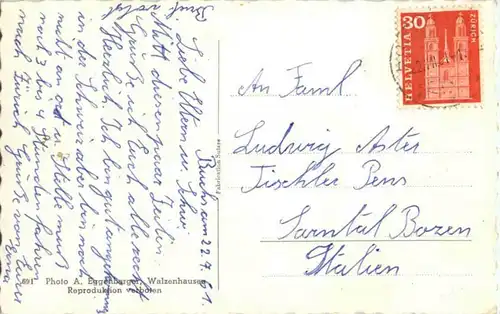 Brief
folgt
Buchs am 22.7.61
Liebe Eltern u.
Mitt diesen paar Zeilen
Grüße ich Euch alle recht
Herzlich. Ich bin gut angekommen
in der Schweiz aber bin noch
nicht an ort u. Stelle muß
noch 3 bis 4 Stunden fahren
nach Zürich Grüße von Eurer
An Faml.
Ludwig Aster
Tischler Pens
Sarntal Bozen
Italien
30
HELVETIA
ZÜRICH
Fabrication Suisse
691 Photo A. Eggenberger, Walzenhausen
Reproduktion verboten